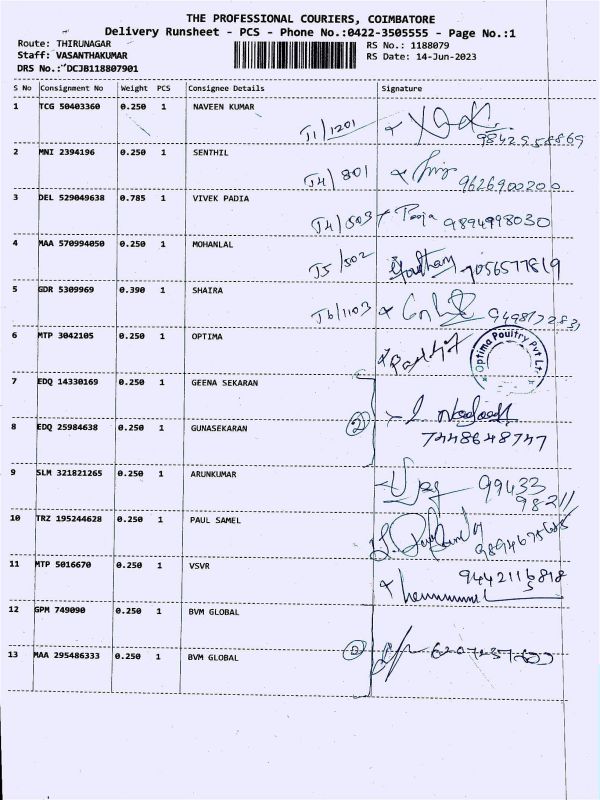 THE PROFESSIONAL COURIERS, COIMBATORE
Delivery Runsheet - PCS - Phone No.:0422-3505555 - Page No.:1
Route: THIRUNAGAR RS No.: 1188079
Staff: VASANTHAKUMAR RS Date: 14-Jun-2023
DRS No.: DCJB118807901
S No Consignment No Weight PCS Consignee Details Signature
1 TCG 50403360 0.250 1 NAVEEN KUMAR
J1/1201 9842958869
2 MNI 2394196 0.250 1 SENTHIL
J4/801 9626900200
3 DEL 529049638 0.785 1 VIVEK PADIA
J4/503 Pooja 9894998030
4 MAA 570994050 0.250 1 MOHANLAL
J5/502 Goutham 7056577819
5 GDR 5309969 0.390 1 SHAIRA
J6/1103
6 MTP 3042105 0.250 1 OPTIMA
Optima Poultry Pvt Lt
7 EDQ 14330169 0.250 1 GEENA SEKARAN
8 EDQ 25984638 0.250 1 GUNASEKARAN
2 7448648747
9 SLM 321821265 0.250 1 ARUNKUMAR
99433
98211
10 TRZ 195244628 0.250 1 PAUL SAMEL
11 MTP 5016670 0.250 1 VSVR
12 GPM 749090 0.250 1 BVM GLOBAL
13 MAA 295486333 0.250 1 BVM GLOBAL
2